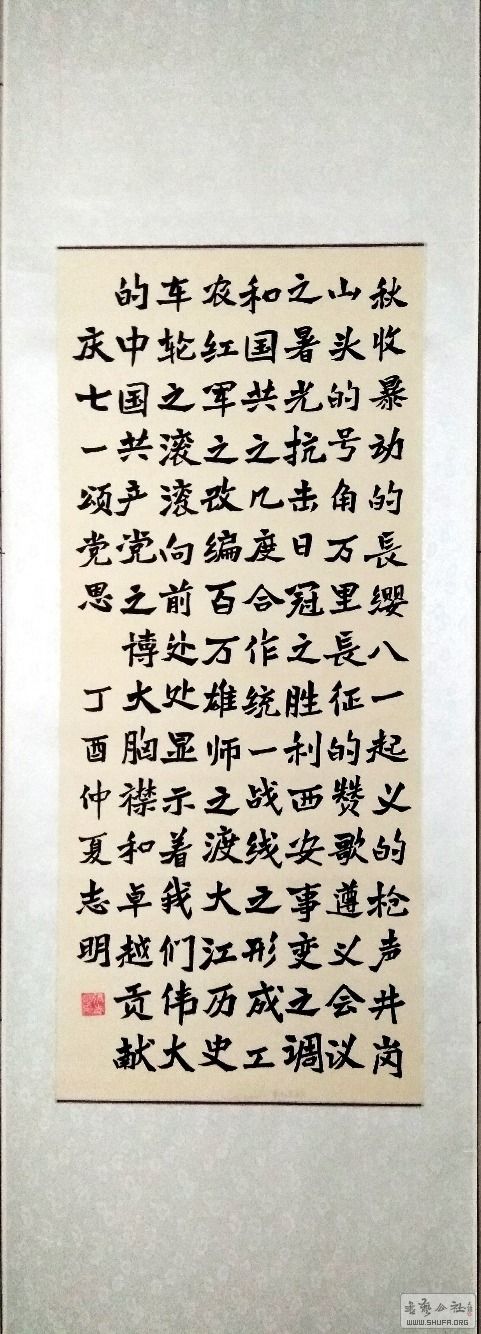 秋收暴动的長缨八一起义的枪声井岗
山头的号角万里長征的赞歌遵义会议
之暑光抗击日冠之胜利西安事变之调
和国共之几度合作统一战线之形成工
农红军之改编百万雄师之渡大江历史
车轮之滚滚向前处处显示着我们伟大
的中国共产党之博大胸襟和卓越贡献
庆七一颂党思丁酉仲夏志明
WWW.SHUFA.ORG